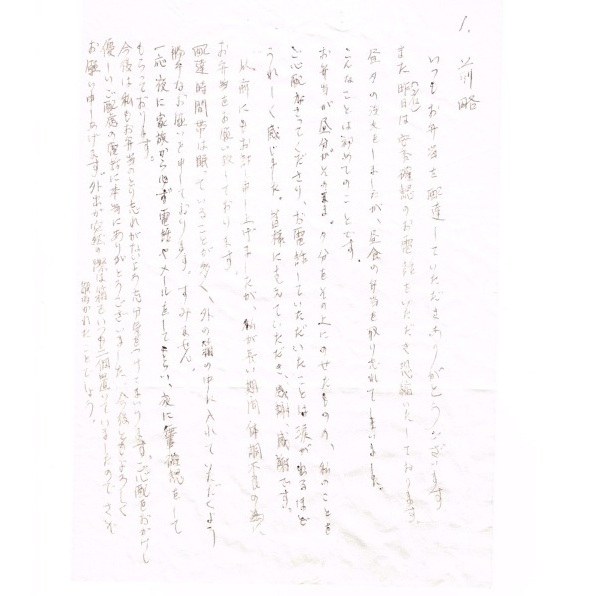 1. 前略
いつもお弁当を配達していただきありがとうございます
また昨日は安否確認のお電話をいただき恐縮いたしております
昼夕の注文をしましたが、昼食の弁当を取り忘れてしまいました。
こんなことは初めてのことです。
お弁当が昼分がそのまま。夕分をその上にのせたものの、私のことを
ご心配なさってくださり、お電話していただいたことは涙が出るほど
うれしく感じました。皆様に支えていただき、感謝、感謝です。
以前にもお話し申し上げましたが、私が長い期間体調不良の為、
お弁当をお願い致しております。
配達時間帯は眠っていることが多く、外の箱の中に入れていただくよう
お願いを申しております。すみません。
一応夜に家族から必ず電話やメールをしてもらい、夜に無事確認をして
もらっております。
今後は私もお弁当のとり忘れがないよう充分気をつけてまいります。ご心配をおかけし
優しいご配慮の電話に本当にありがとうございました。今後ともよろしく
お願い申しあげます。外出が突然の際は箱をいつも二個置いていましたのでさぞ
驚かれたことでしょう。